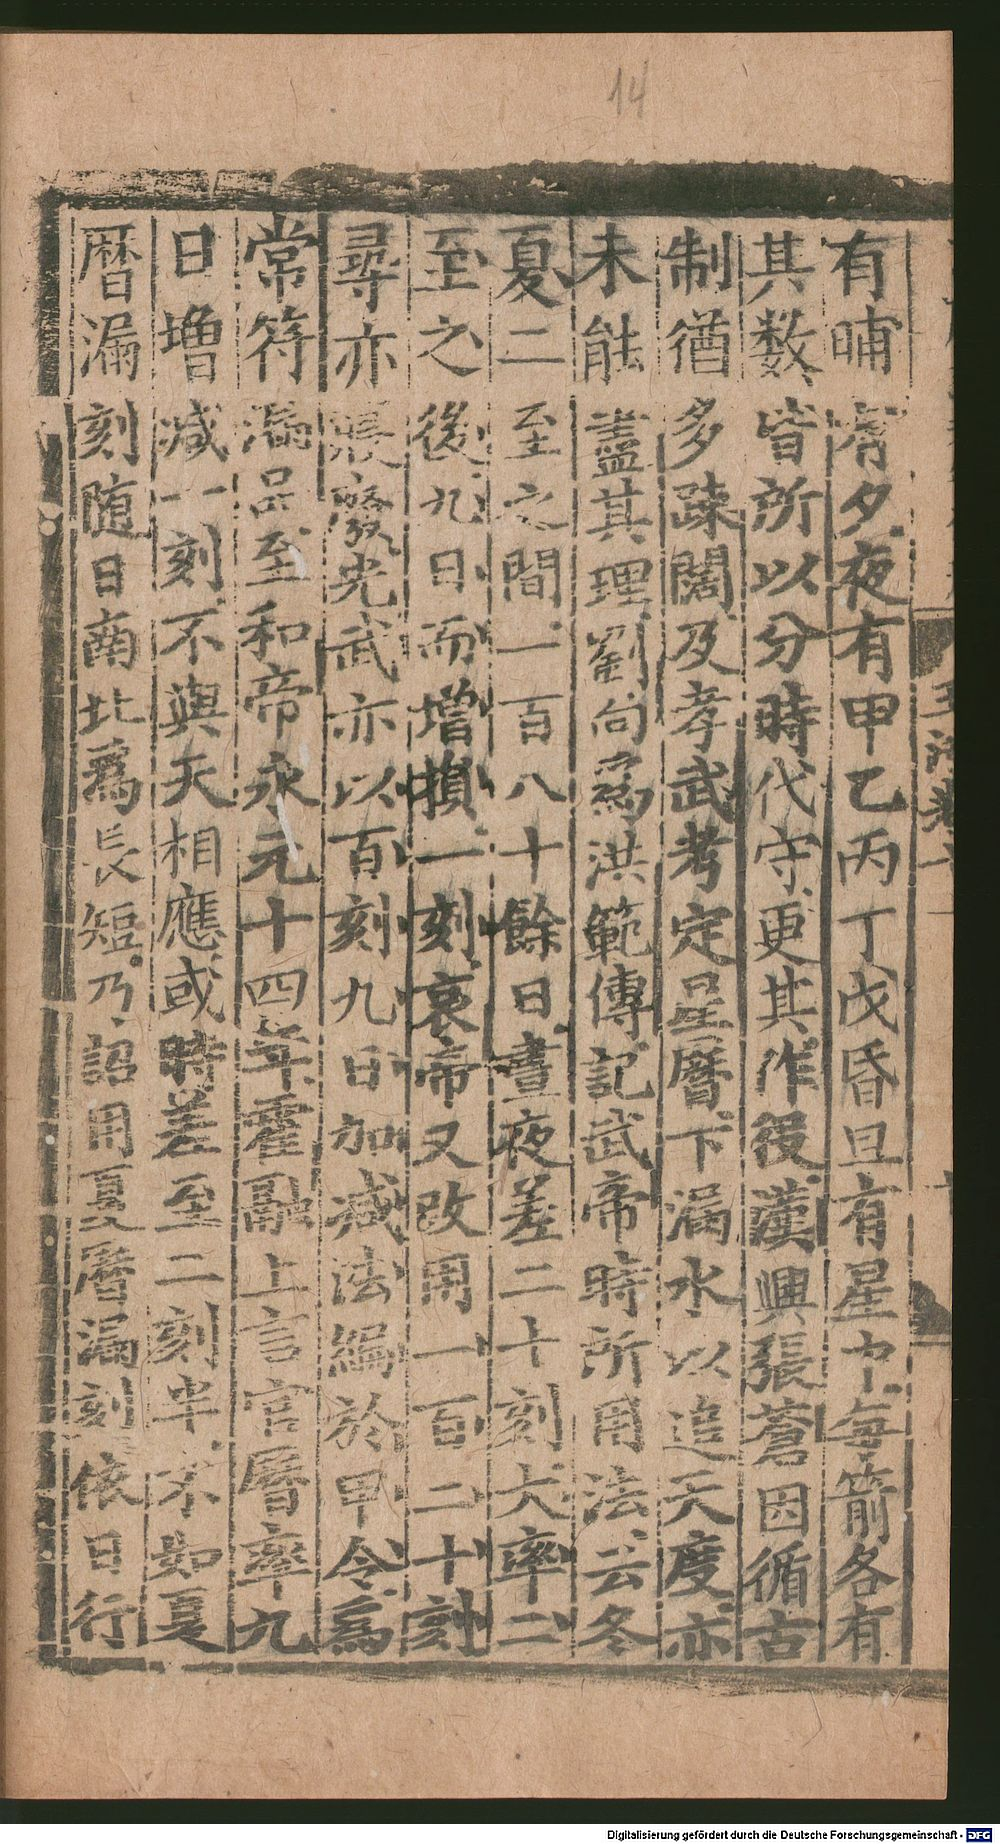 14
有晡有夕夜有甲乙丙丁戊昏旦有星中每箭各有
其数皆所以分時代守更其作役漢興張蒼因循古
制猶多踈闊及孝武考定星曆下漏水以追天度亦
未能盡其理劉向爲洪範傳記武帝時所用法云冬
夏二至之間一百八十餘日晝夜差二十刻大率二
至之後九日而增損一刻哀帝又改用一百二十刻
尋亦寢廢光武亦以百刻九日加减法編於甲令爲
常符漏品至和帝永元十四年霍融上言官曆率九
日增减一刻不與天相應或時差至二刻半不如夏
曆漏刻随日南北爲長短乃詔用夏曆漏刻依日行
玉海卷十一
Digitalisierung gefördert durch die Deutsche Forschungsgemeinschaft - DFG